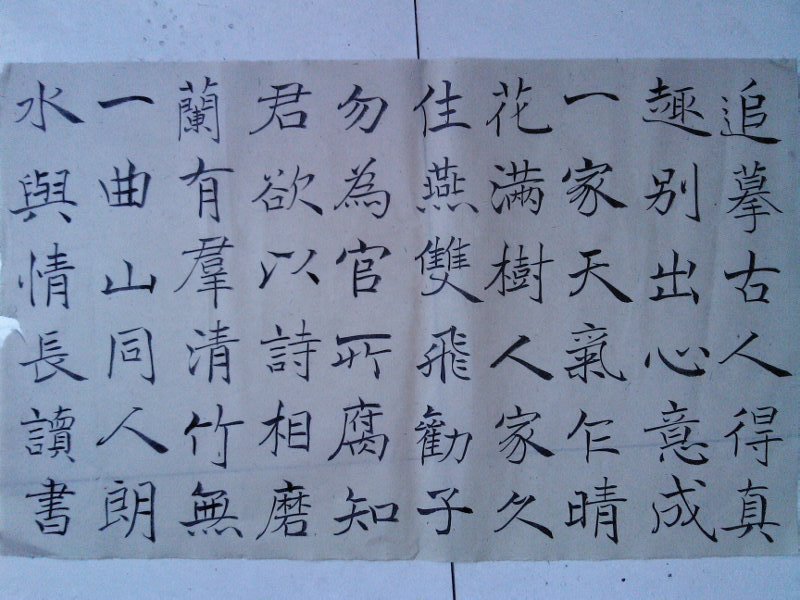 追摹古人得真
趣别出心意成
一家天氣乍晴
花滿樹人家久
住燕雙飛勸子
勿為官所腐知
君欲以詩相磨
蘭有羣清竹無
一曲山同人朗
水與情長讀書